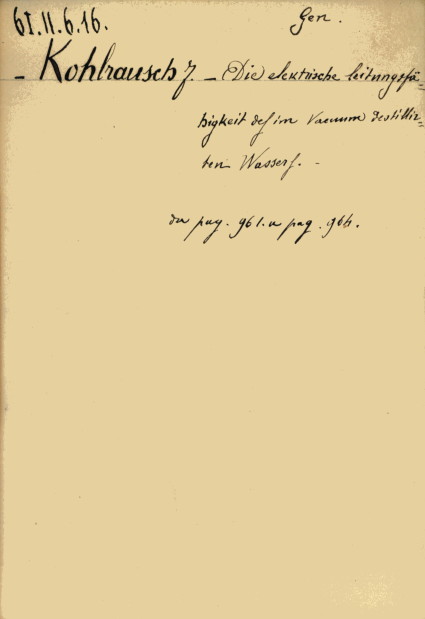 61.11.6.16.
Gen.
- Kohlrausch F. - Die elektrische leitungsfä=
higkeit des im Vacuum destillir=
ten Wassers. -
da pag. 961. a pag. 964.